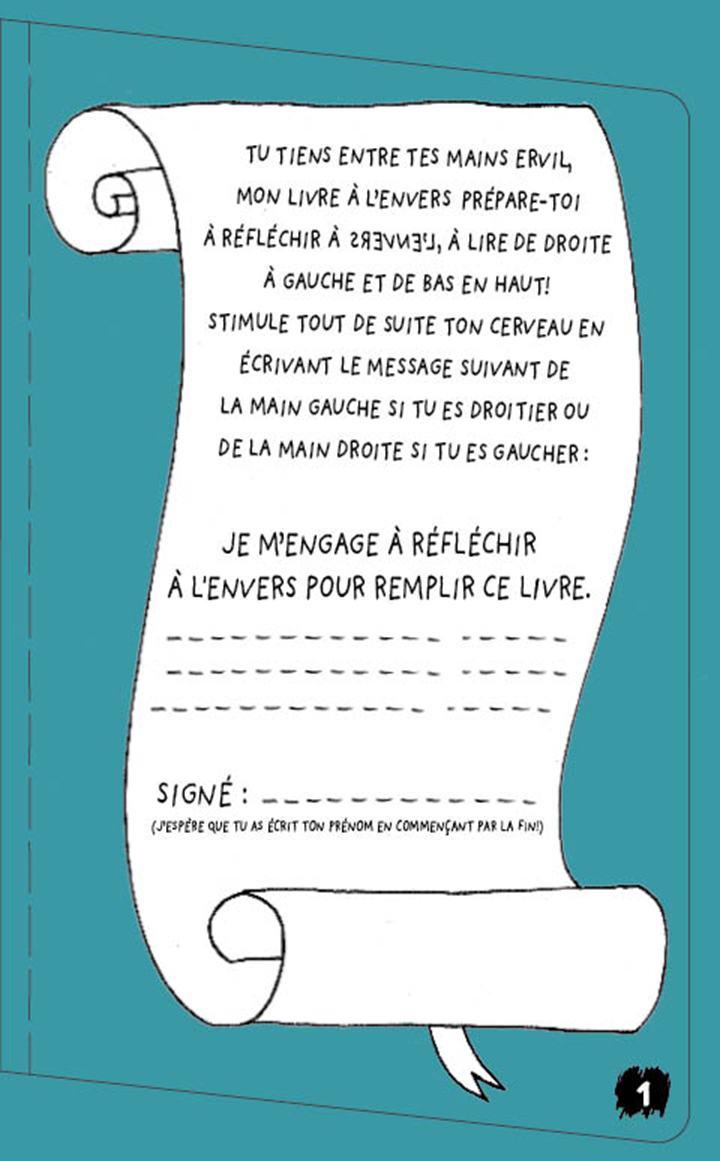 TU TIENS ENTRE TES MAINS ERVIL,
MON LIVRE À L'ENVERS PRÉPARE-TOI
À RÉFLÉCHIR À L'ENVERS, À LIRE DE DROITE
À GAUCHE ET DE BAS EN HAUT!
STIMULE TOUT DE SUITE TON CERVEAU EN
ÉCRIVANT LE MESSAGE SUIVANT DE
LA MAIN GAUCHE SI TU ES DROITIER OU
DE LA MAIN DROITE SI TU ES GAUCHER :
JE M'ENGAGE À RÉFLÉCHIR
À L'ENVERS POUR REMPLIR CE LIVRE.
SIGNÉ :
(J'ESPÈRE QUE TU AS ÉCRIT TON PRÉNOM EN COMMENÇANT PAR LA FIN!)
1